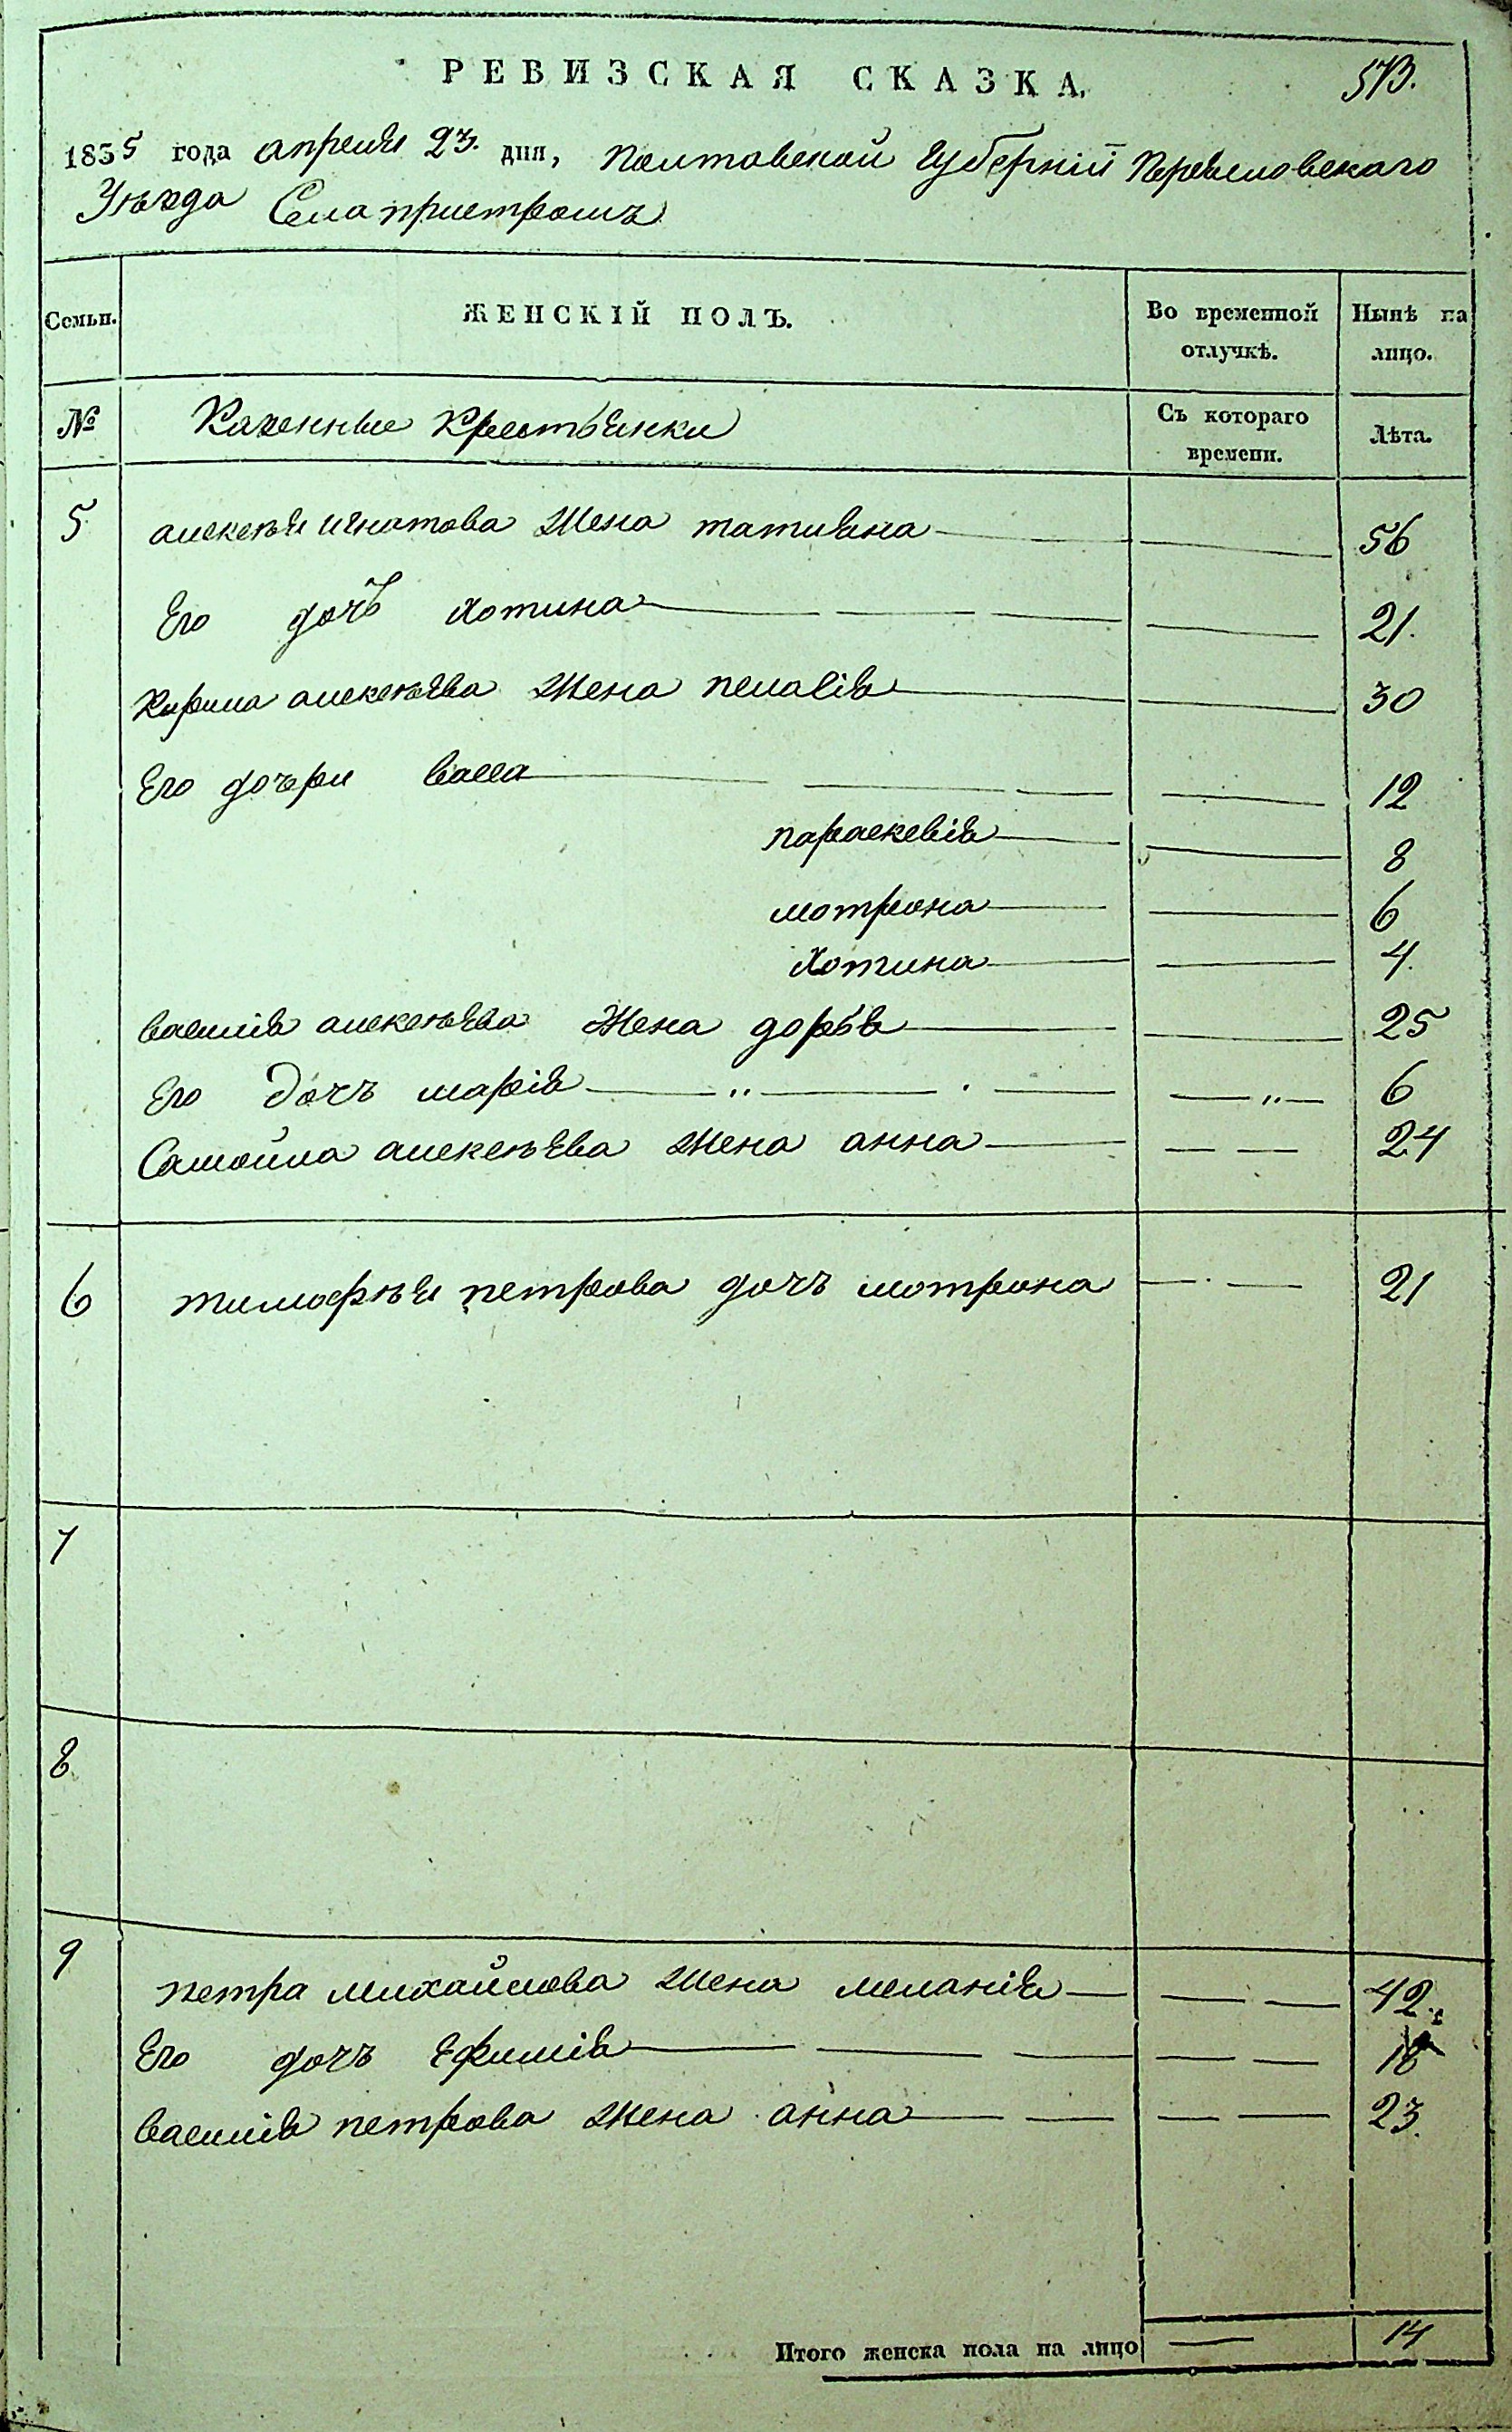 РЕВИЗСКАЯ СКАЗКА. 573.
1835 года апреля 23. дня, Полтавской Губерніи Переясловскаго
Уѣзда Села пристромъ
Семьи. ЖЕНСКІЙ ПОЛЪ. Во временной отлучкѣ. Нынѣ на лицо.
№ Казенные Крестьянки Съ котораго времени. Лѣта.
5 алексѣя игнатова жена татияна 56
Его дочь хотина 21.
Кирила алексѣева жена пелагія 30
Его дочери васса 12
параскевія 8
мотрона 6
хотина 4.
василія алексѣева жена дорья 25
Его дочъ марія „ „ 6
Самойла алексѣева жена анна 24
6 тимофѣя петрова дочъ мотрона 21
7
8
9 петра михайлова жена меланія 42.
Его дочъ Ефимія 18
василія петрова жена анна 23.
Итого женска пола на лицо 14